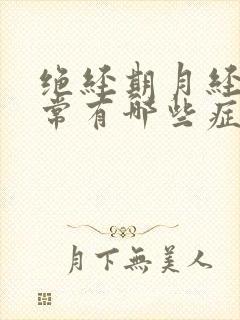 绝经期月经
常有哪些症
月下無美人